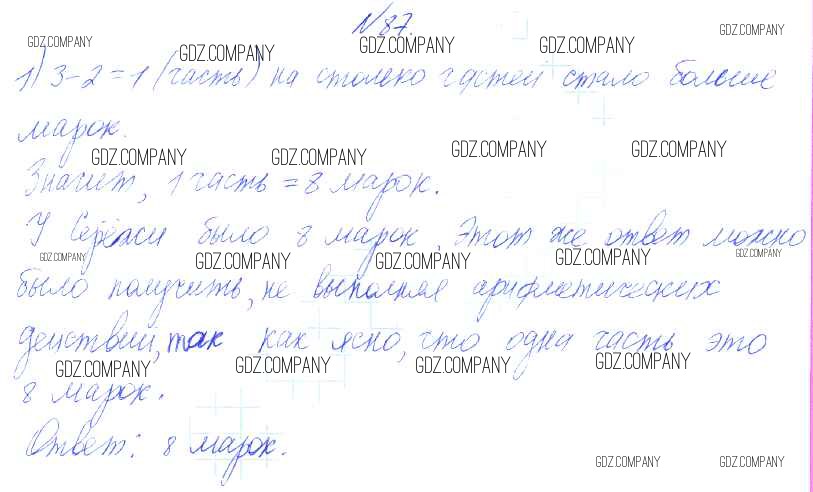 №87.
1) 3-2=1 (часть) на столько частей стало больше
марок.
Значит, 1 часть = 8 марок.
У Серёжи было 8 марок. Этот же ответ можно
было получить, не выполняя арифметических
действий, так как ясно, что одна часть это
8 марок.
Ответ: 8 марок.
GDZ.COMPANY GDZ.COMPANY GDZ.COMPANY GDZ.COMPANY GDZ.COMPANY
GDZ.COMPANY GDZ.COMPANY GDZ.COMPANY GDZ.COMPANY
GDZ.COMPANY GDZ.COMPANY GDZ.COMPANY GDZ.COMPANY GDZ.COMPANY
GDZ.COMPANY GDZ.COMPANY GDZ.COMPANY GDZ.COMPANY
GDZ.COMPANY GDZ.COMPANY